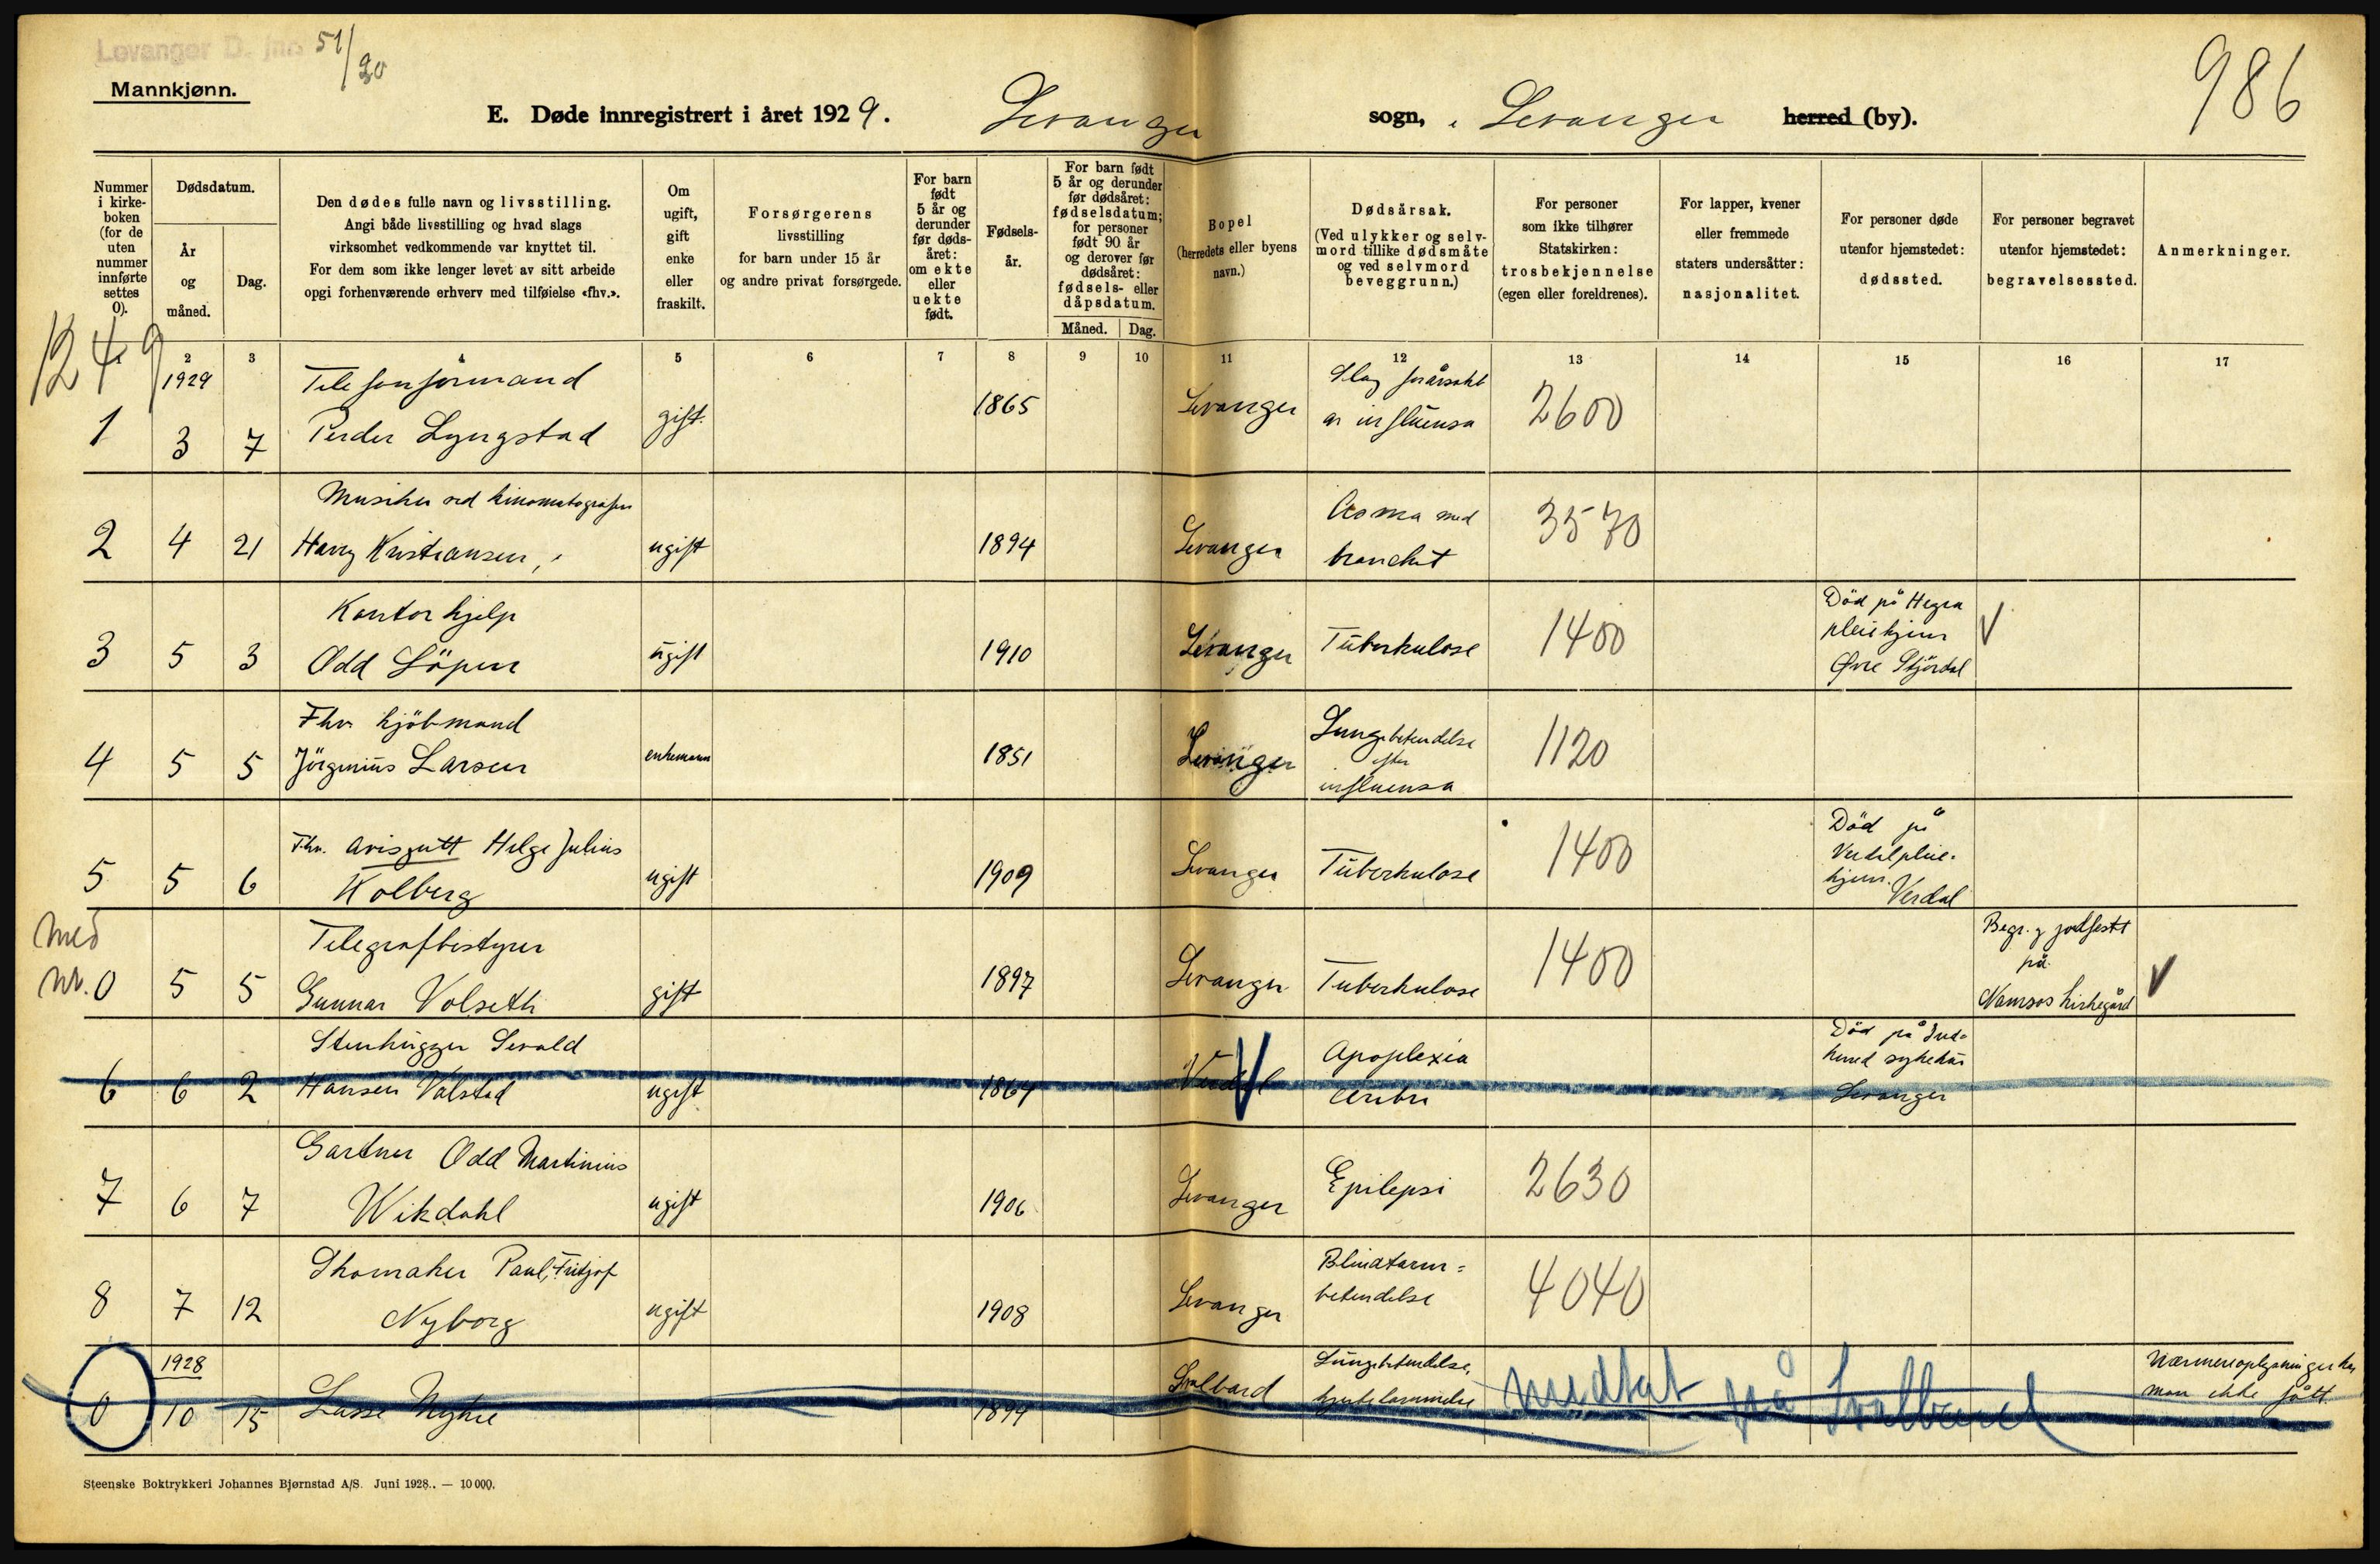 Levanger D. jnr. 51/30
Mannkjønn.
E. Døde innregistrert i året 1929. Levanger sogn, Levanger herred (by).
986
Nummer i kirke-boken (for de uten nummer innførte settes 0).
Dødsdatum.
År og måned.
Dag.
Den dødes fulle navn og livsstilling.
Angi både livsstilling og hvad slags
virksomhet vedkommende var knyttet til.
For dem som ikke lenger levet av sitt arbeide
opgi forhenværende erhverv med tilføielse «fhv.».
Om ugift, gift enke eller fraskilt.
Forsørgerens livsstilling for barn under 15 år og andre privat forsørgede.
For barn født 5 år og derunder før døds-året: om ekte eller uekte født.
Fødsels-år.
For barn født 5 år og derunder før dødsåret: fødselsdatum; for personer født 90 år og derover før dødsåret: fødsels- eller dåpsdatum.
Måned. Dag.
Bopel (herredets eller byens navn.)
Dødsårsak. (Ved ulykker og selv-mord tillike dødsmåte og ved selvmord beveggrunn.)
For personer som ikke tilhører Statskirken: trosbekjennelse (egen eller foreldrenes).
For lapper, kvener eller fremmede staters undersåtter: nasjonalitet.
For personer døde utenfor hjemstedet: dødssted.
For personer begravet utenfor hjemstedet: begravelsessted.
Anmerkninger.
1249
2 3 4 5 6 7 8 9 10 11 12 13 14 15 16 17
1929 Telefonformand Slag forårsaket
1 3 7 Peder Lyngstad gift 1865 Levanger av influensa 2600
Musiker ved kinomatografen Asma med
2 4 21 Harry Kristiansen, ugift 1894 Levanger bronchit 3570
Kontorhjelp Död på Hegra
pleiehjem
3 5 3 Odd Löpen ugift 1910 Levanger Tuberkulose 1400 Øvre Stjördal
Fhv. kjöbmand Lungebetendelse
4 5 5 Jörginius Larsen enkemann 1851 Levanger efter 1120
influensa
Fhv. avisgutt Helge Julius Död på
Verdal pleie-
5 5 6 Kolberg ugift 1909 Levanger Tuberkulose 1400 hjem. Verdal
med Telegrafbestyrer Begr. og jordfestt
på
nr. 0 5 5 Gunnar Volseth gift 1897 Levanger Tuberkulose 1400 Namsos kirkegård
Stenhugger Sevald Apoplexia Död på Inn-
herred sykehus
6 6 2 Hansen Valstad ugift 1864 Verdal Levanger
Gartner Odd Martinius
7 6 7 Wikdahl ugift 1906 Levanger Epilepsi 2630
Skomaker Paul Fritjof Blindtarm-
8 7 12 Nyborg ugift 1908 Levanger betendelse 4040
1928 Lungebetendelse, Nærmere oplysninger har
0 10 15 Lasse 1894 Svalbard hjertelammelse medtat på Svalbard man ikke fått.
Steenske Boktrykkeri Johannes Bjørnstad A/S. Juni 1928. — 10 000.